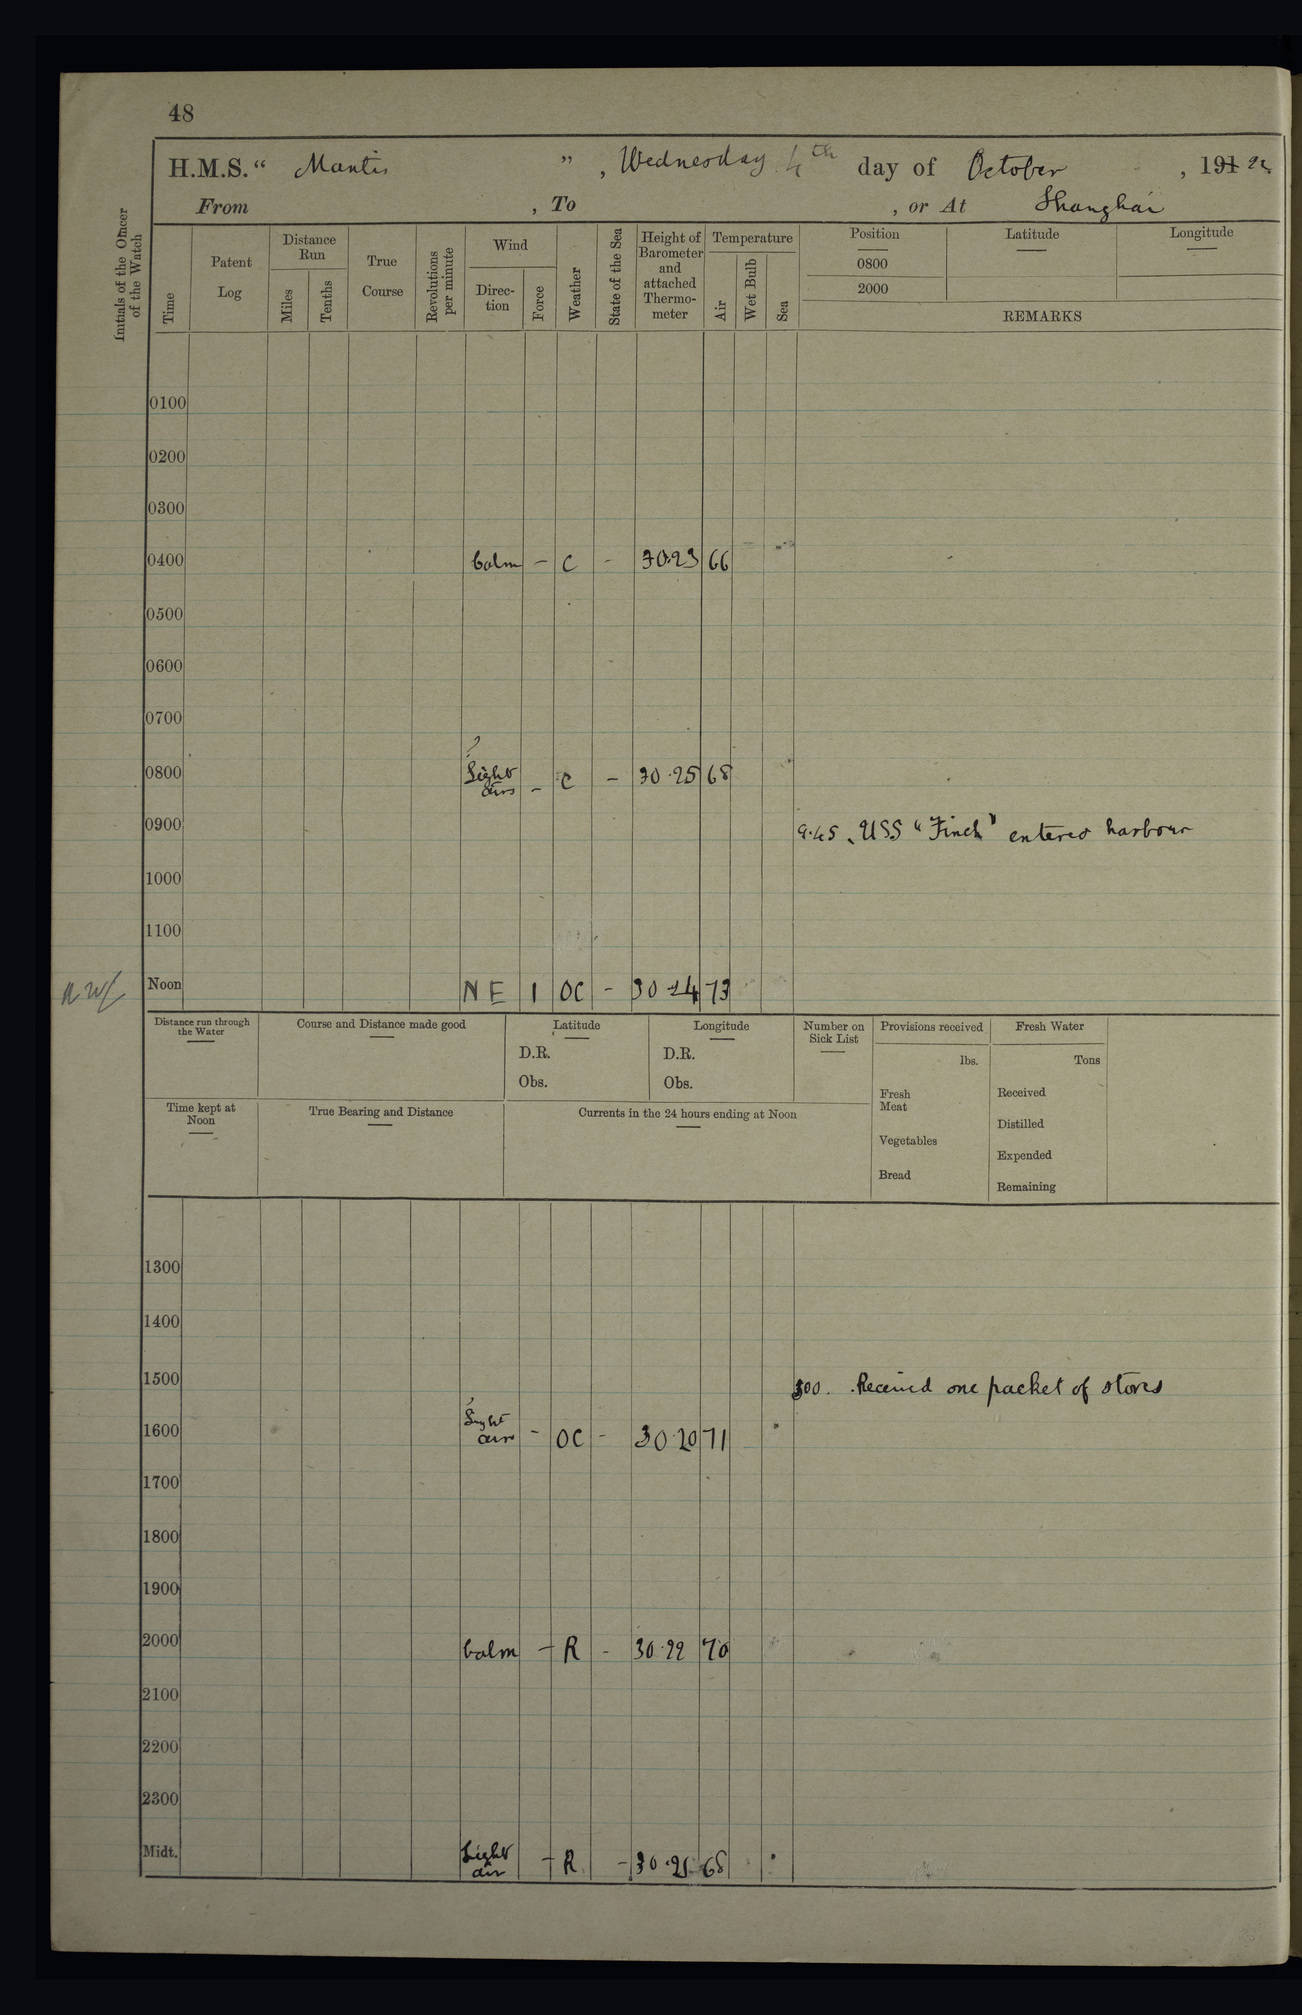 48
H.M.S. “ Mantis ”, Wednesday 4th day of October, 191 22
From , To , or At Shanghai
Initials of the Officer of the Watch
Time
Patent Log
Distance Run
Miles
Tenths
True Course
Revolutions per minute
Wind
Direc-tion
Force
Weather
State of the Sea
Height of Barometer and attached Thermo-meter
Temperature
Air
Wet Bulb
Sea
Position
Latitude
Longitude
0800
2000
REMARKS
0100
0200
0300
0400 Calm – C - 30.23 66
0500
0600
0700
?
0800 Light airs – C – 30.25 68
0900 9.45. USS “Finch” entered harbour
1000
1100
Noon NE 1 OC - 30 24 73
Distance run through the Water
Course and Distance made good
Latitude
D.R.
Obs.
Longitude
D.R.
Obs.
Number on Sick List
Provisions received
lbs.
Fresh Meat
Vegetables
Bread
Fresh Water
Tons
Received
Distilled
Expended
Remaining
Time kept at Noon
True Bearing and Distance
Currents in the 24 hours ending at Noon
1300
1400
1500 300. Received one packet of stores
1600 Light airs - OC - 30.20 71
1700
1800
1900
2000 Calm – R - 30.22 70
2100
2200
2300
Midt. Light air – R – 30.21 68